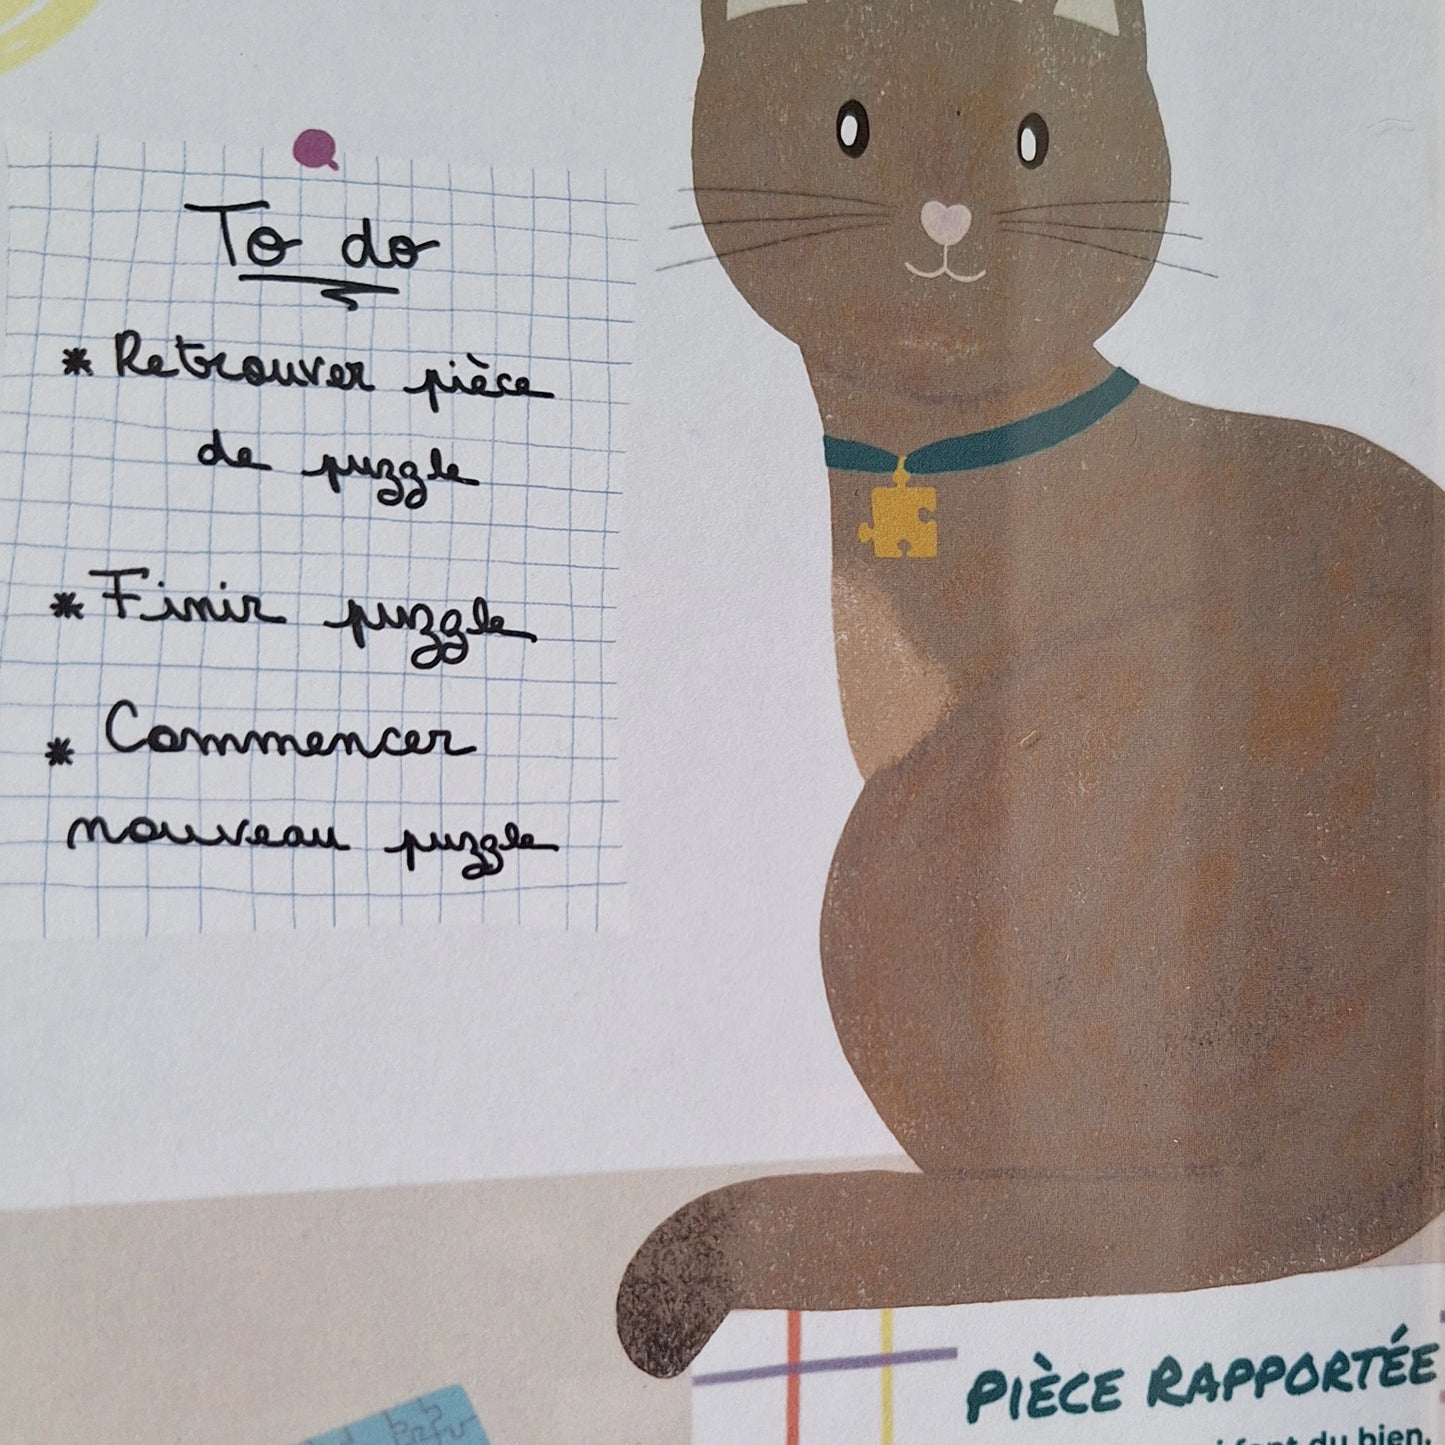 To do
* Retrouver pièce
de puzzle
* Finir puzzle
* Commencer
nouveau puzzle
PIÈCE RAPPORTÉE
font du bien.